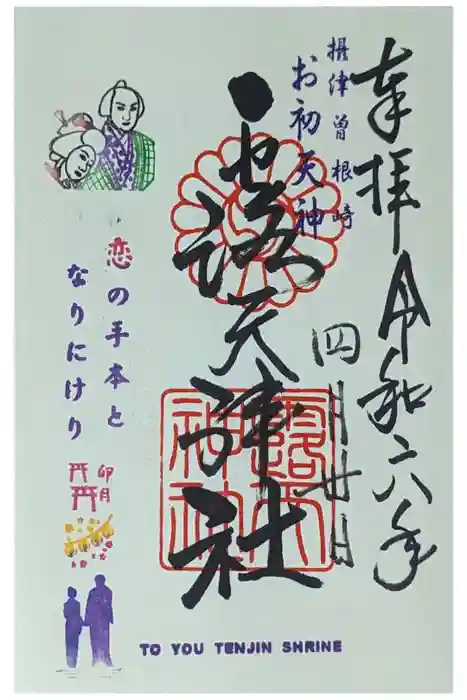 奉拝 令和六年
四月廿日
摂津曽根崎
お初天神
露天神社
露天
神社
恋の手本と
なりにけり
卯月
TO YOU TENJIN SHRINE